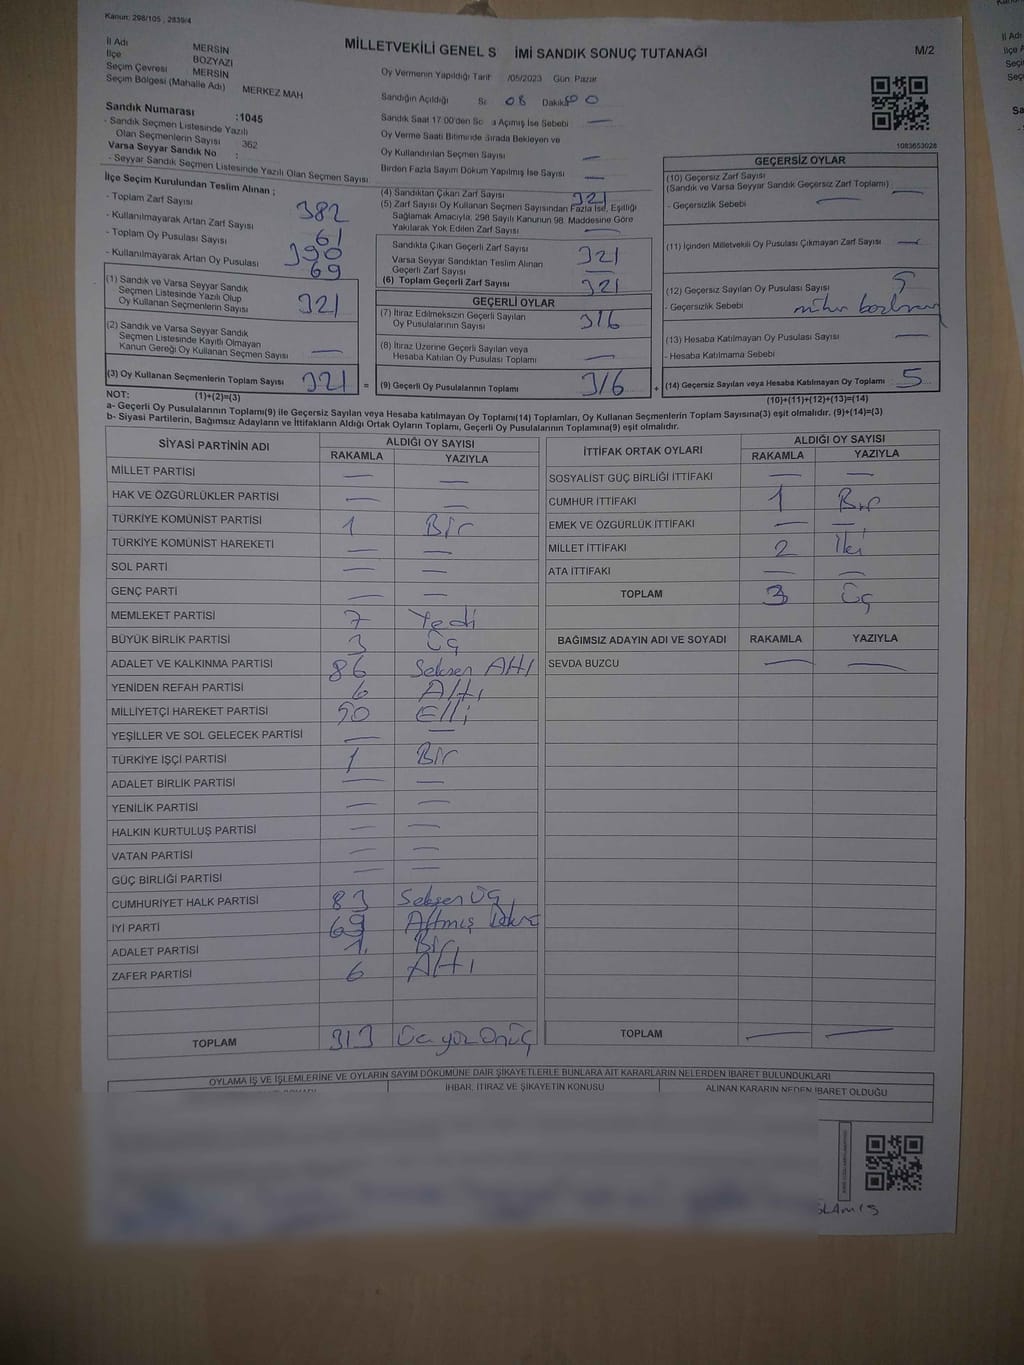 Kanun: 298/105 , 2839/4
MİLLETVEKİLİ GENEL S İMİ SANDIK SONUÇ TUTANAĞI
M/2
İl Adı MERSİN
İlçe BOZYAZI
Seçim Çevresi MERSİN
Seçim Bölgesi (Mahalle Adı) MERKEZ MAH
Sandık Numarası :1045
- Sandık Seçmen Listesinde Yazılı
Olan Seçmenlerin Sayısı 362
Varsa Seyyar Sandık No :
- Seyyar Sandık Seçmen Listesinde Yazılı Olan Seçmen Sayısı
İlçe Seçim Kurulundan Teslim Alınan ;
- Toplam Zarf Sayısı 382
- Kullanılmayarak Artan Zarf Sayısı 61
- Toplam Oy Pusulası Sayısı 390
- Kullanılmayarak Artan Oy Pusulası 69
(1) Sandık ve Varsa Seyyar Sandık
Seçmen Listesinde Yazılı Olup
Oy Kullanan Seçmenlerin Sayısı 321
(2) Sandık ve Varsa Seyyar Sandık
Seçmen Listesinde Kayıtlı Olmayan
Kanun Gereği Oy Kullanan Seçmen Sayısı —
(3) Oy Kullanan Seçmenlerin Toplam Sayısı 321 =
Oy Vermenin Yapıldığı Tarih /05/2023 Gün: Pazar
Sandığın Açıldığı Sa 08 Dakika 00
Sandık Saat 17:00'den Açımış İse Sebebi —
Oy Verme Saati Bitiminde Sırada Bekleyen ve
Oy Kullandırılan Seçmen Sayısı —
Birden Fazla Sayım Döküm Yapılmış İse Sayısı —
(4) Sandıktan Çıkan Zarf Sayısı 321
(5) Zarf Sayısı Oy Kullanan Seçmen Sayısından Fazla İse, Eşitliği
Sağlamak Amacıyla; 298 Sayılı Kanunun 98. Maddesine Göre
Yakılarak Yok Edilen Zarf Sayısı —
Sandıkta Çıkan Geçerli Zarf Sayısı 321
Varsa Seyyar Sandıktan Teslim Alınan
Geçerli Zarf Sayısı —
(6) Toplam Geçerli Zarf Sayısı 321
GEÇERLİ OYLAR
(7) İtiraz Edilmeksizin Geçerli Sayılan
Oy Pusulalarının Sayısı 316
(8) İtiraz Üzerine Geçerli Sayılan veya
Hesaba Katılan Oy Pusulası Toplamı —
(9) Geçerli Oy Pusulalarının Toplamı 316 +
1083653028
GEÇERSİZ OYLAR
(10) Geçersiz Zarf Sayısı
(Sandık ve Varsa Seyyar Sandık Geçersiz Zarf Toplamı) —
- Geçersizlik Sebebi —
(11) İçinden Milletvekili Oy Pusulası Çıkmayan Zarf Sayısı —
(12) Geçersiz Sayılan Oy Pusulası Sayısı 5
- Geçersizlik Sebebi
(13) Hesaba Katılmayan Oy Pusulası Sayısı —
- Hesaba Katılmama Sebebi
(14) Geçersiz Sayılan veya Hesaba Katılmayan Oy Toplamı 5
NOT: (1)+(2)=(3) (10)+(11)+(12)+(13)=(14)
a- Geçerli Oy Pusulalarının Toplamı(9) ile Geçersiz Sayılan veya Hesaba katılmayan Oy Toplamı(14) Toplamları, Oy Kullanan Seçmenlerin Toplam Sayısına(3) eşit olmalıdır. (9)+(14)=(3)
b- Siyasi Partilerin, Bağımsız Adayların ve İttifakların Aldığı Ortak Oyların Toplamı, Geçerli Oy Pusulalarının Toplamına(9) eşit olmalıdır.
SİYASİ PARTİNİN ADI ALDIĞI OY SAYISI
RAKAMLA YAZIYLA
MİLLET PARTİSİ — —
HAK VE ÖZGÜRLÜKLER PARTİSİ — —
TÜRKİYE KOMÜNİST PARTİSİ 1 Bir
TÜRKİYE KOMÜNİST HAREKETİ — —
SOL PARTİ — —
GENÇ PARTİ — —
MEMLEKET PARTİSİ 7 Yedi
BÜYÜK BİRLİK PARTİSİ 3 Üç
ADALET VE KALKINMA PARTİSİ 86 Seksen Altı
YENİDEN REFAH PARTİSİ 6 Altı
MİLLİYETÇİ HAREKET PARTİSİ 50 Elli
YEŞİLLER VE SOL GELECEK PARTİSİ — —
TÜRKİYE İŞÇİ PARTİSİ 1 Bir
ADALET BİRLİK PARTİSİ — —
YENİLİK PARTİSİ — —
HALKIN KURTULUŞ PARTİSİ — —
VATAN PARTİSİ — —
GÜÇ BİRLİĞİ PARTİSİ — —
CUMHURİYET HALK PARTİSİ 83 Seksen Üç
İYİ PARTİ 69 Altmış
ADALET PARTİSİ 1 Bir
ZAFER PARTİSİ 6 Altı
TOPLAM 313 Üç yüz Onüç
İTTİFAK ORTAK OYLARI ALDIĞI OY SAYISI
RAKAMLA YAZIYLA
SOSYALİST GÜÇ BİRLİĞİ İTTİFAKI — —
CUMHUR İTTİFAKI 1 Bir
EMEK VE ÖZGÜRLÜK İTTİFAKI — —
MİLLET İTTİFAKI 2 İki
ATA İTTİFAKI — —
TOPLAM 3 Üç
BAĞIMSIZ ADAYIN ADI VE SOYADI RAKAMLA YAZIYLA
SEVDA BUZCU — —
TOPLAM — —
OYLAMA İŞ VE İŞLEMLERİNE VE OYLARIN SAYIM DÖKÜMÜNE DAİR ŞİKAYETLERLE BUNLARA AİT KARARLARIN NELERDEN İBARET BULUNDUKLARI
İHBAR, İTİRAZ VE ŞİKAYETİN KONUSU ALINAN KARARIN NEDEN İBARET OLDUĞU